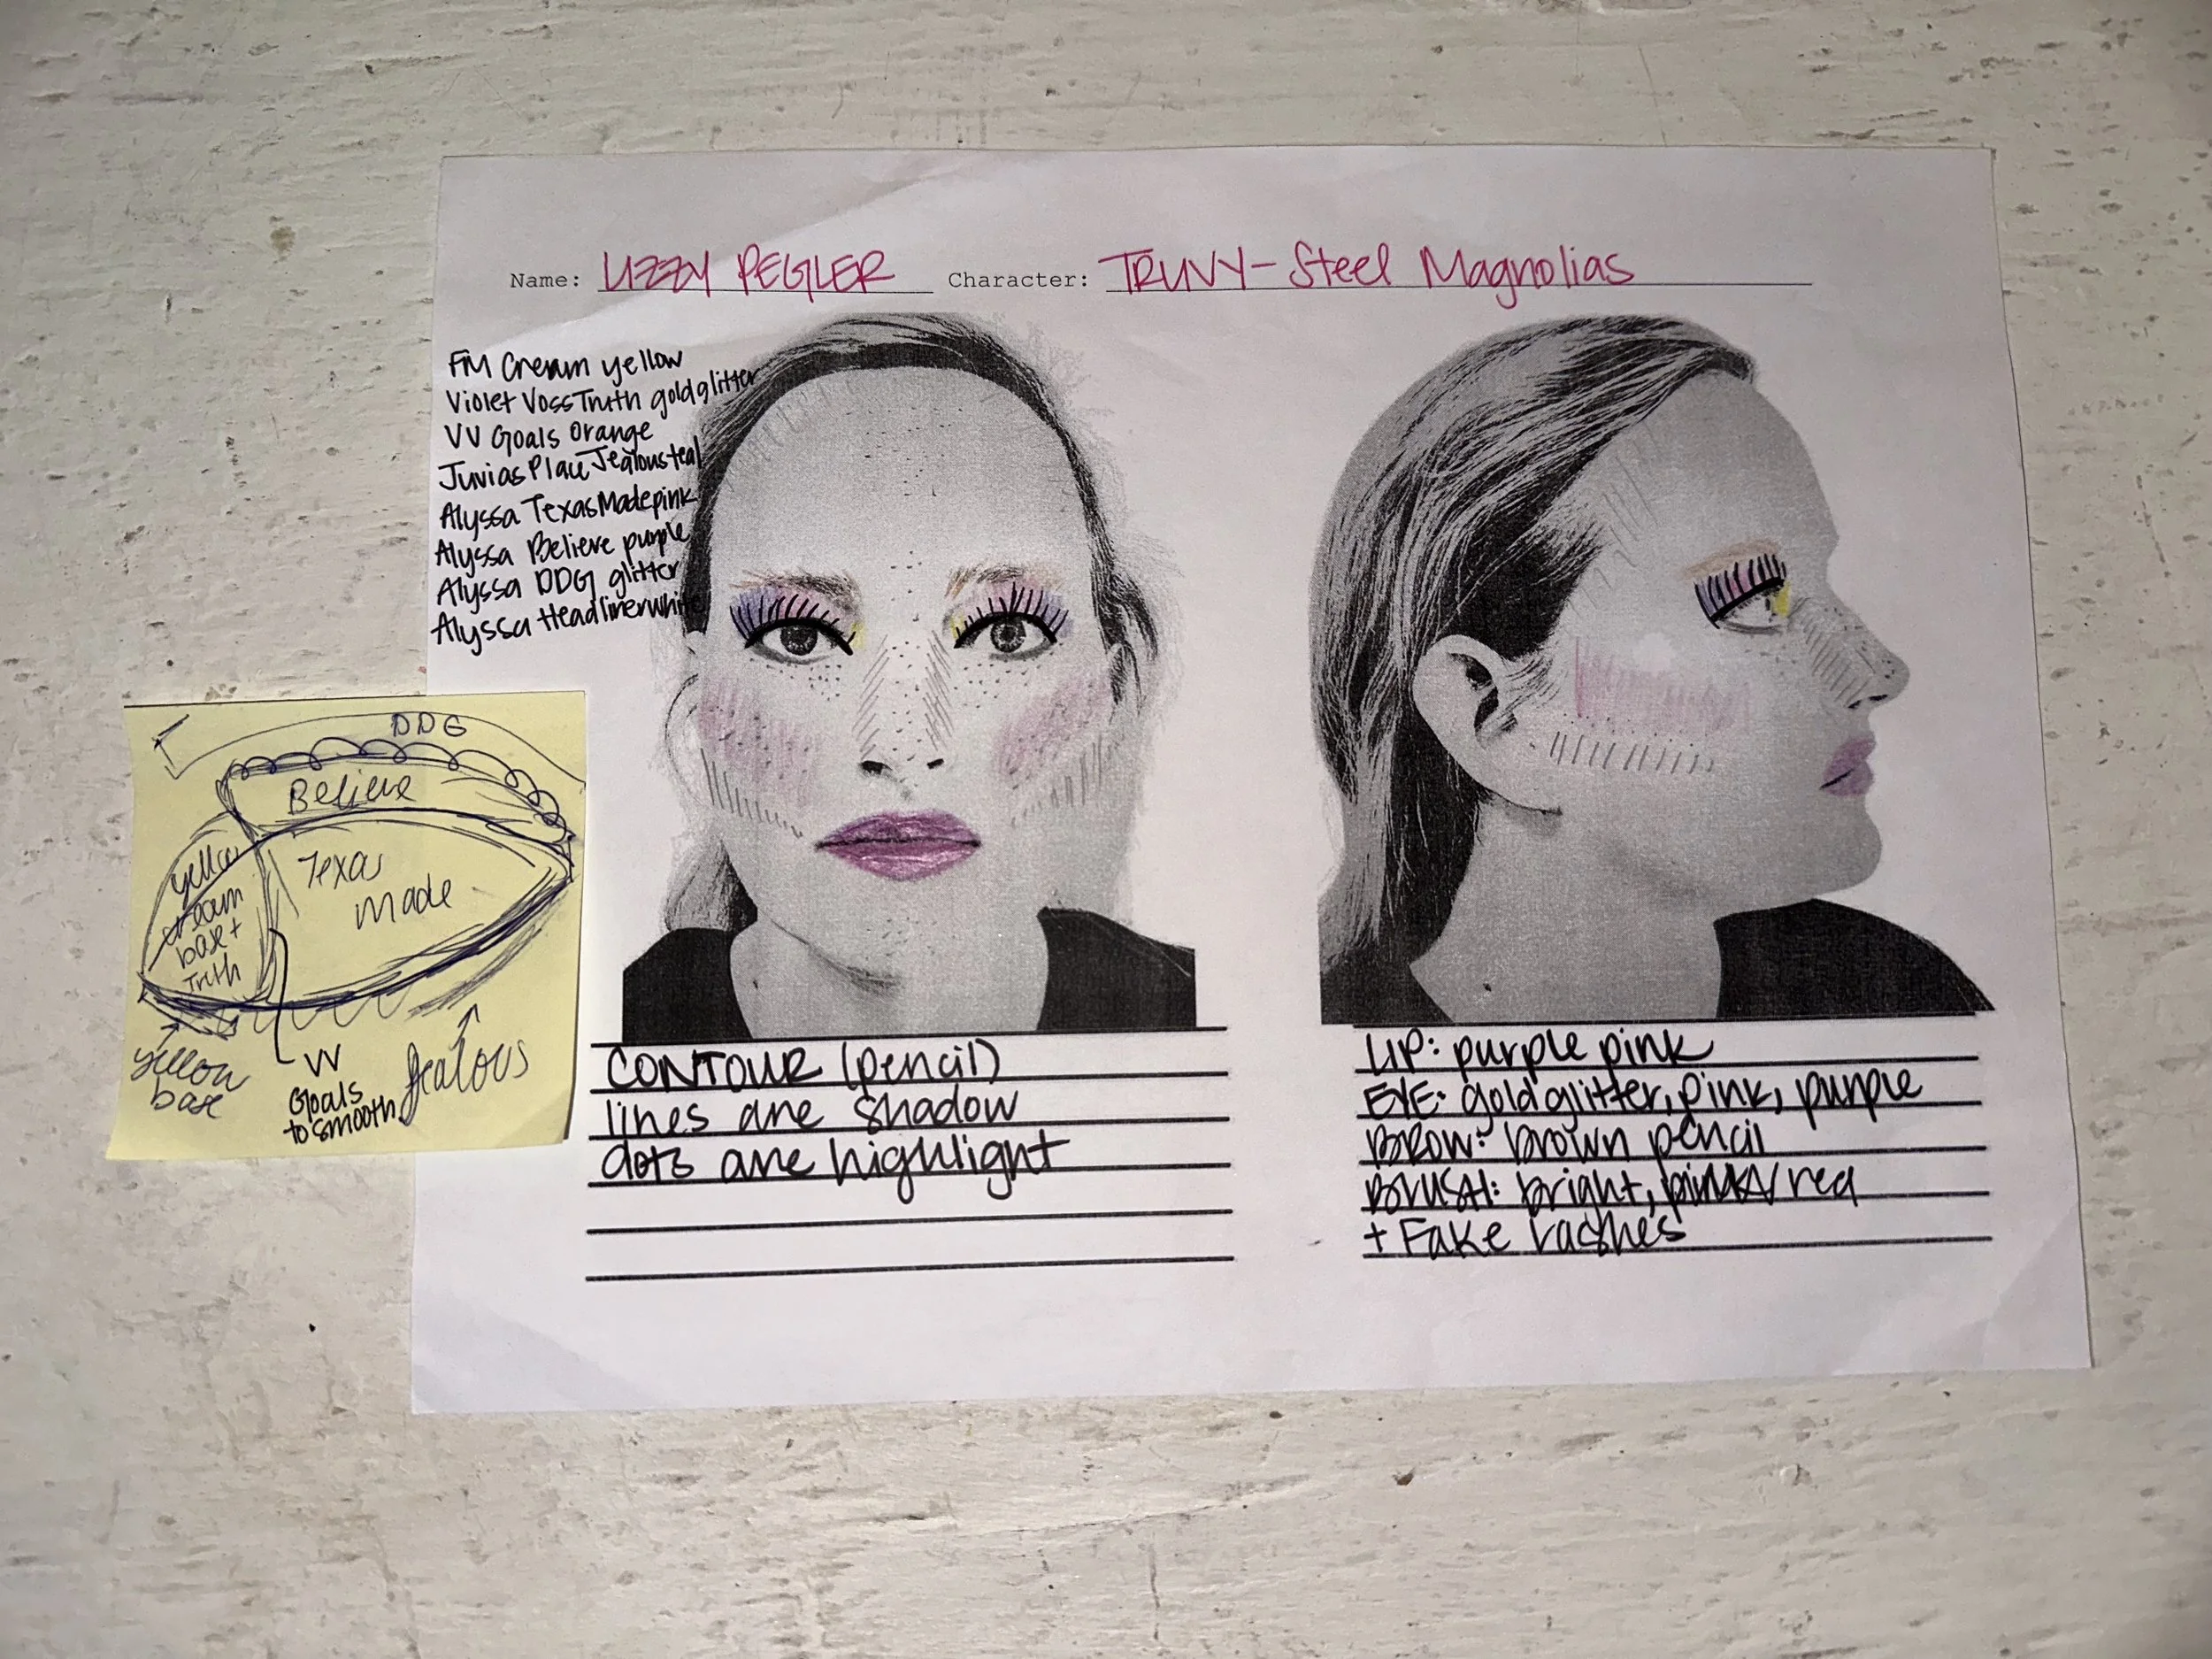 Name: LIZZY PEGLER Character: TRUVY - Steel Magnolias
FM Cream yellow
Violet Voss Truth gold glitter
VV Goals Orange
Juvias Place Jealous teal
Alyssa Texas Made pink
Alyssa Believe purple
Alyssa DDG glitter
Alyssa Headliner white
DDG
Believe
yellow
cream
base +
Truth
Texas
Made
yellow
base
VV
Goals
to smooth
Jealous
CONTOUR (pencil)
lines are shadow
dots are highlight
LIP: purple pink
EYE: gold glitter, pink, purple
BROW: brown pencil
BLUSH: bright, pink/red
+ Fake Lashes